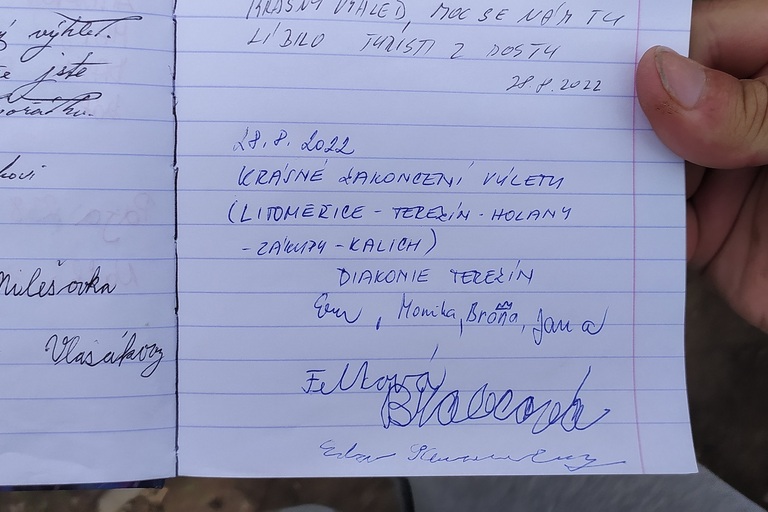 ý výhled.
jste
kovi
Milešovka
Vlasákovy
KRÁSNÝ VÝHLED, MOC SE NÁM TU
LÍBILO TURISTI Z DOSTU
28.8.2022
28.8.2022
KRÁSNÉ ZAKONČENÍ VÝLETU
(LITOMĚŘICE - TEREZÍN - HOLANY
- ZÁKUPY - KALICH)
DIAKONIE TEREZÍN
, Monika, Broňa, Jana
Feltová